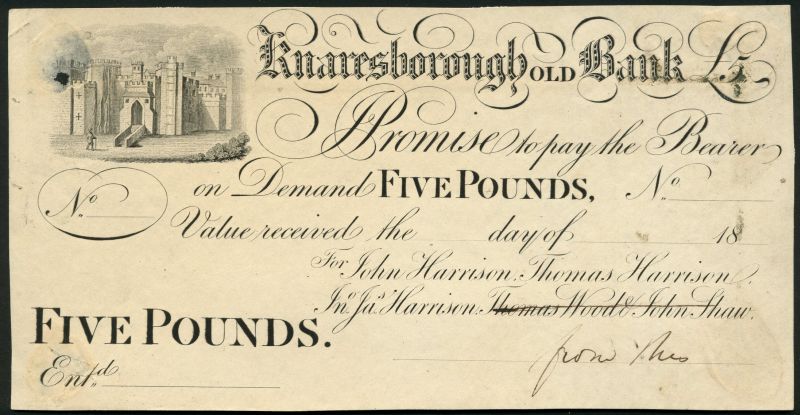 Knaresborough OLD Bank £5
I Promise to pay the Bearer
on Demand FIVE POUNDS, No
No
Value received the day of 18
For John Harrison, Thomas Harrison,
Jno. Jas. Harrison, Thomas Wood & John Shaw.
FIVE POUNDS.
Entd.
from